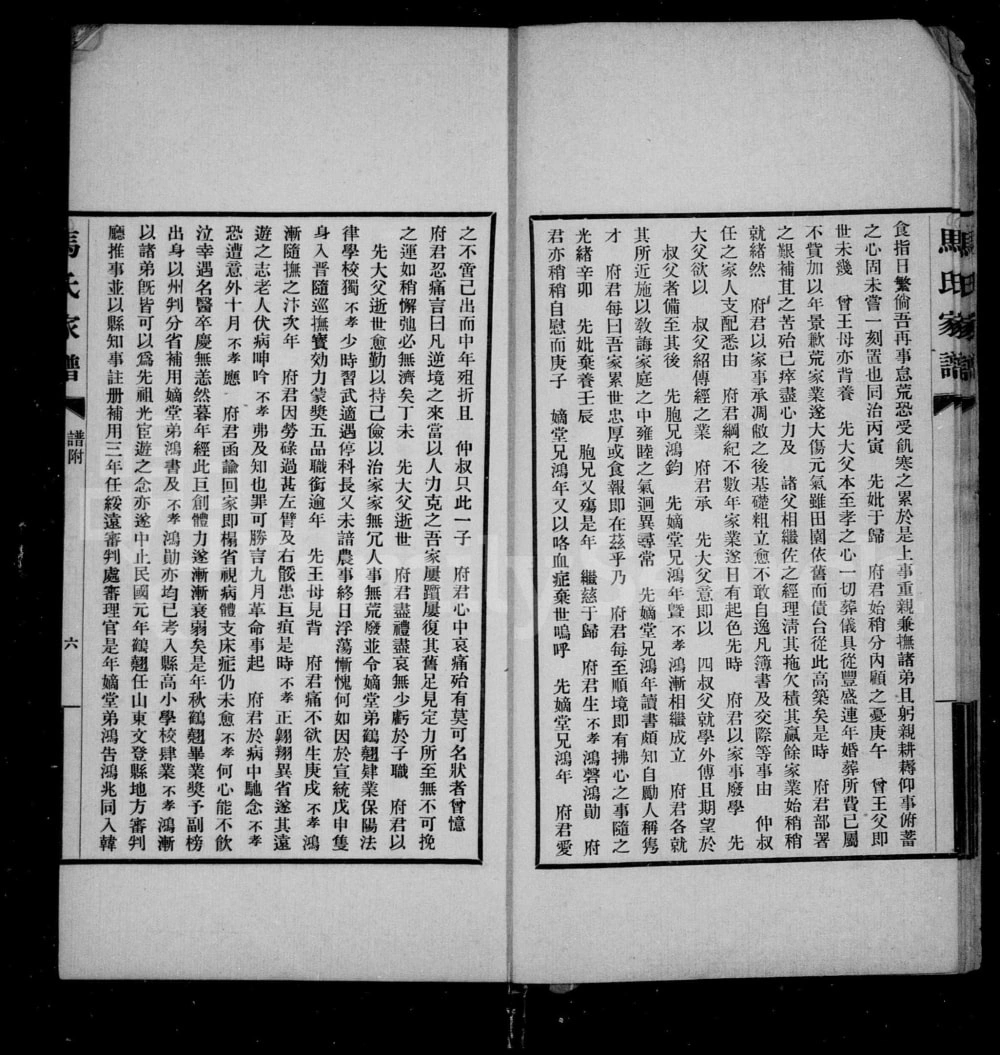 食指日繁偷吾再事息荒恐受飢寒之累於是上事重親兼撫諸弟且躬親耕耨仰事俯蓄
之心固未嘗一刻置也同治丙寅 先妣于歸 府君始稍分內顧之憂庚午 曾王父即
世未幾 曾王母亦背養 先大父本至孝之心一切葬儀具從豐盛連年婚葬所費已屬
不貲加以年景歉荒家業遂大傷元氣雖田園依舊而債台從此高築矣是時 府君部署
之艱補苴之苦殆已瘁盡心力及 諸父相繼佐之經理清其拖欠積其贏餘家業始稍稍
就緒然 府君以家事承凋敝之後基礎粗立愈不敢自逸凡簿書及交際等事由 仲叔
任之家人支配悉由 府君綱紀不數年家業遂日有起色先時 府君以家事廢學 先
大父欲以 叔父紹傳經之業 府君承 先大父意即以 四叔父就學外傅且期望於
叔父者備至其後 先胞兄鴻鈞 先嫡堂兄鴻年暨不孝鴻漸相繼成立 府君各就
其所近施以敎誨家庭之中雍睦之氣迥異尋常 先嫡堂兄鴻年讀書頗知自勵人稱雋
才 府君每曰吾家累世忠厚或食報即在茲乎乃 府君每至順境即有拂心之事隨之
光緒辛卯 先妣棄養壬辰 胞兄又殤是年 繼慈于歸 府君生不孝鴻磬鴻勛 府
君亦稍稍自慰而庚子 嫡堂兄鴻年又以咯血症棄世嗚呼 先嫡堂兄鴻年 府君愛
之不啻己出而中年殂折且 仲叔只此一子 府君心中哀痛殆有莫可名狀者曾憶
府君忍痛言曰凡逆境之來當以人力克之吾家屢躓屢復其舊足見定力所至無不可挽
之運如稍懈弛必無濟矣丁未 先大父逝世 府君盡禮盡哀無少虧於子職 府君以
先大父逝世愈勤以持己儉以治家家無冗人事無荒廢並令嫡堂弟鶴翹肄業保陽法
律學校獨不孝少時習武適遇停科長又未諳農事終日浮蕩慚愧何如因於宣統戊申隻
身入晉隨巡撫寶効力蒙獎五品職銜逾年 先王母見背 府君痛不欲生庚戌不孝鴻
漸隨撫之汴次年 府君因勞碌過甚左臂及右骽患巨疽是時不孝正翺翔異省遂其遠
遊之志老人伏病呻吟不孝弗及知也罪可勝言九月革命事起 府君於病中馳念不孝
恐遭意外十月不孝應 府君函諭回家即榻省視病體支床症仍未愈不孝何心能不飲
泣幸遇名醫卒慶無恙然暮年經此巨創體力遂漸漸衰弱矣是年秋鶴翹畢業奬予副榜
出身以州判分省補用嫡堂弟鴻書及不孝鴻勛亦均已考入縣高小學校肄業不孝鴻漸
以諸弟旣皆可以爲先祖光宦遊之念亦遂中止民國元年鶴翹任山東文登縣地方審判
廳推事並以縣知事註册補用三年任綏遠審判處審理官是年嫡堂弟鴻告鴻兆同入韓
馬氏家譜
譜附
六
馬氏家譜